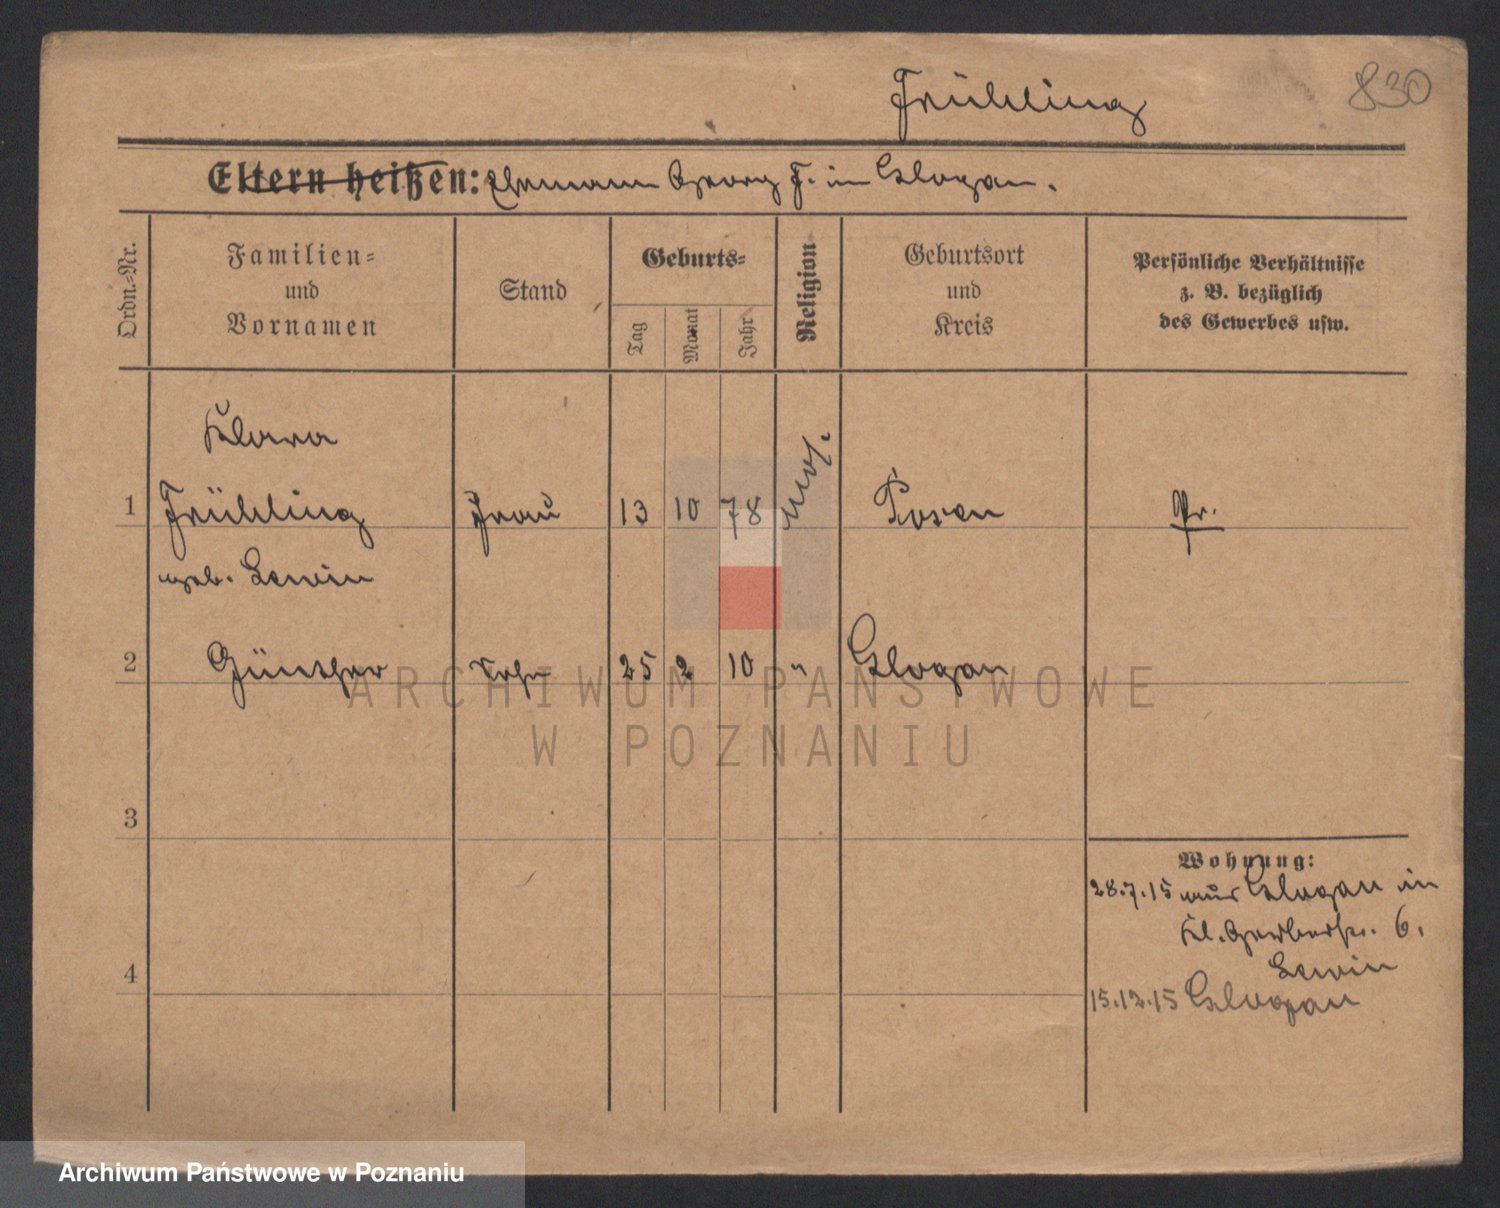 Frühling
830
Eltern heißen: Ehemann Georg F. in Glogau.
Ordn.-Nr.
Familien-
und
Vornamen
Stand
Geburts-
Tag
Monat
Jahr
Religion
Geburtsort
und
Kreis
Persönliche Verhältnisse
z. B. bezüglich
des Gewerbes usw.
Klara
1 Frühling Frau 13 10 78 mos. Posen Pr.
geb. Lewin
2 Günther Sohn 25 2 10 " Glogau
3
4
Wohnung:
28.7.15 aus Glogau in
Kl. Gerberstr. 6.
Lewin
15.12.15 Glogau
ARCHIWUM PAŃSTWOWE
W POZNANIU
Archiwum Państwowe w Poznaniu